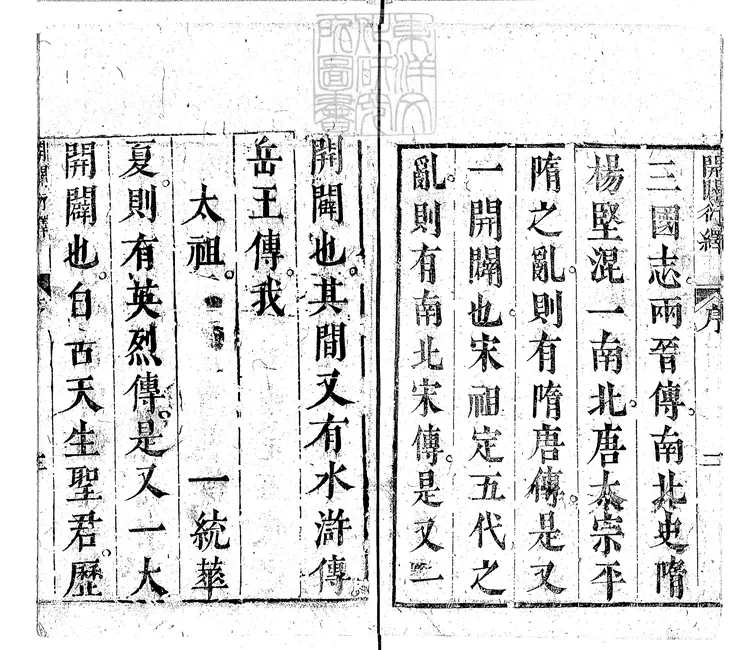 開闢衍繹
序
二
三國志兩晉傳。南北史隋
楊堅混一南北。唐太宗平
隋之亂。則有隋唐傳。是又
一開闢也。宋祖定五代之
亂。則有南北宋傳。是又一
開闢也。其間又有水滸傳。
岳王傳。我
太祖。 一統華
夏。則有英烈傳。是又一大
開闢也。自古天生聖君。歷
東洋文
化研究
所圖書